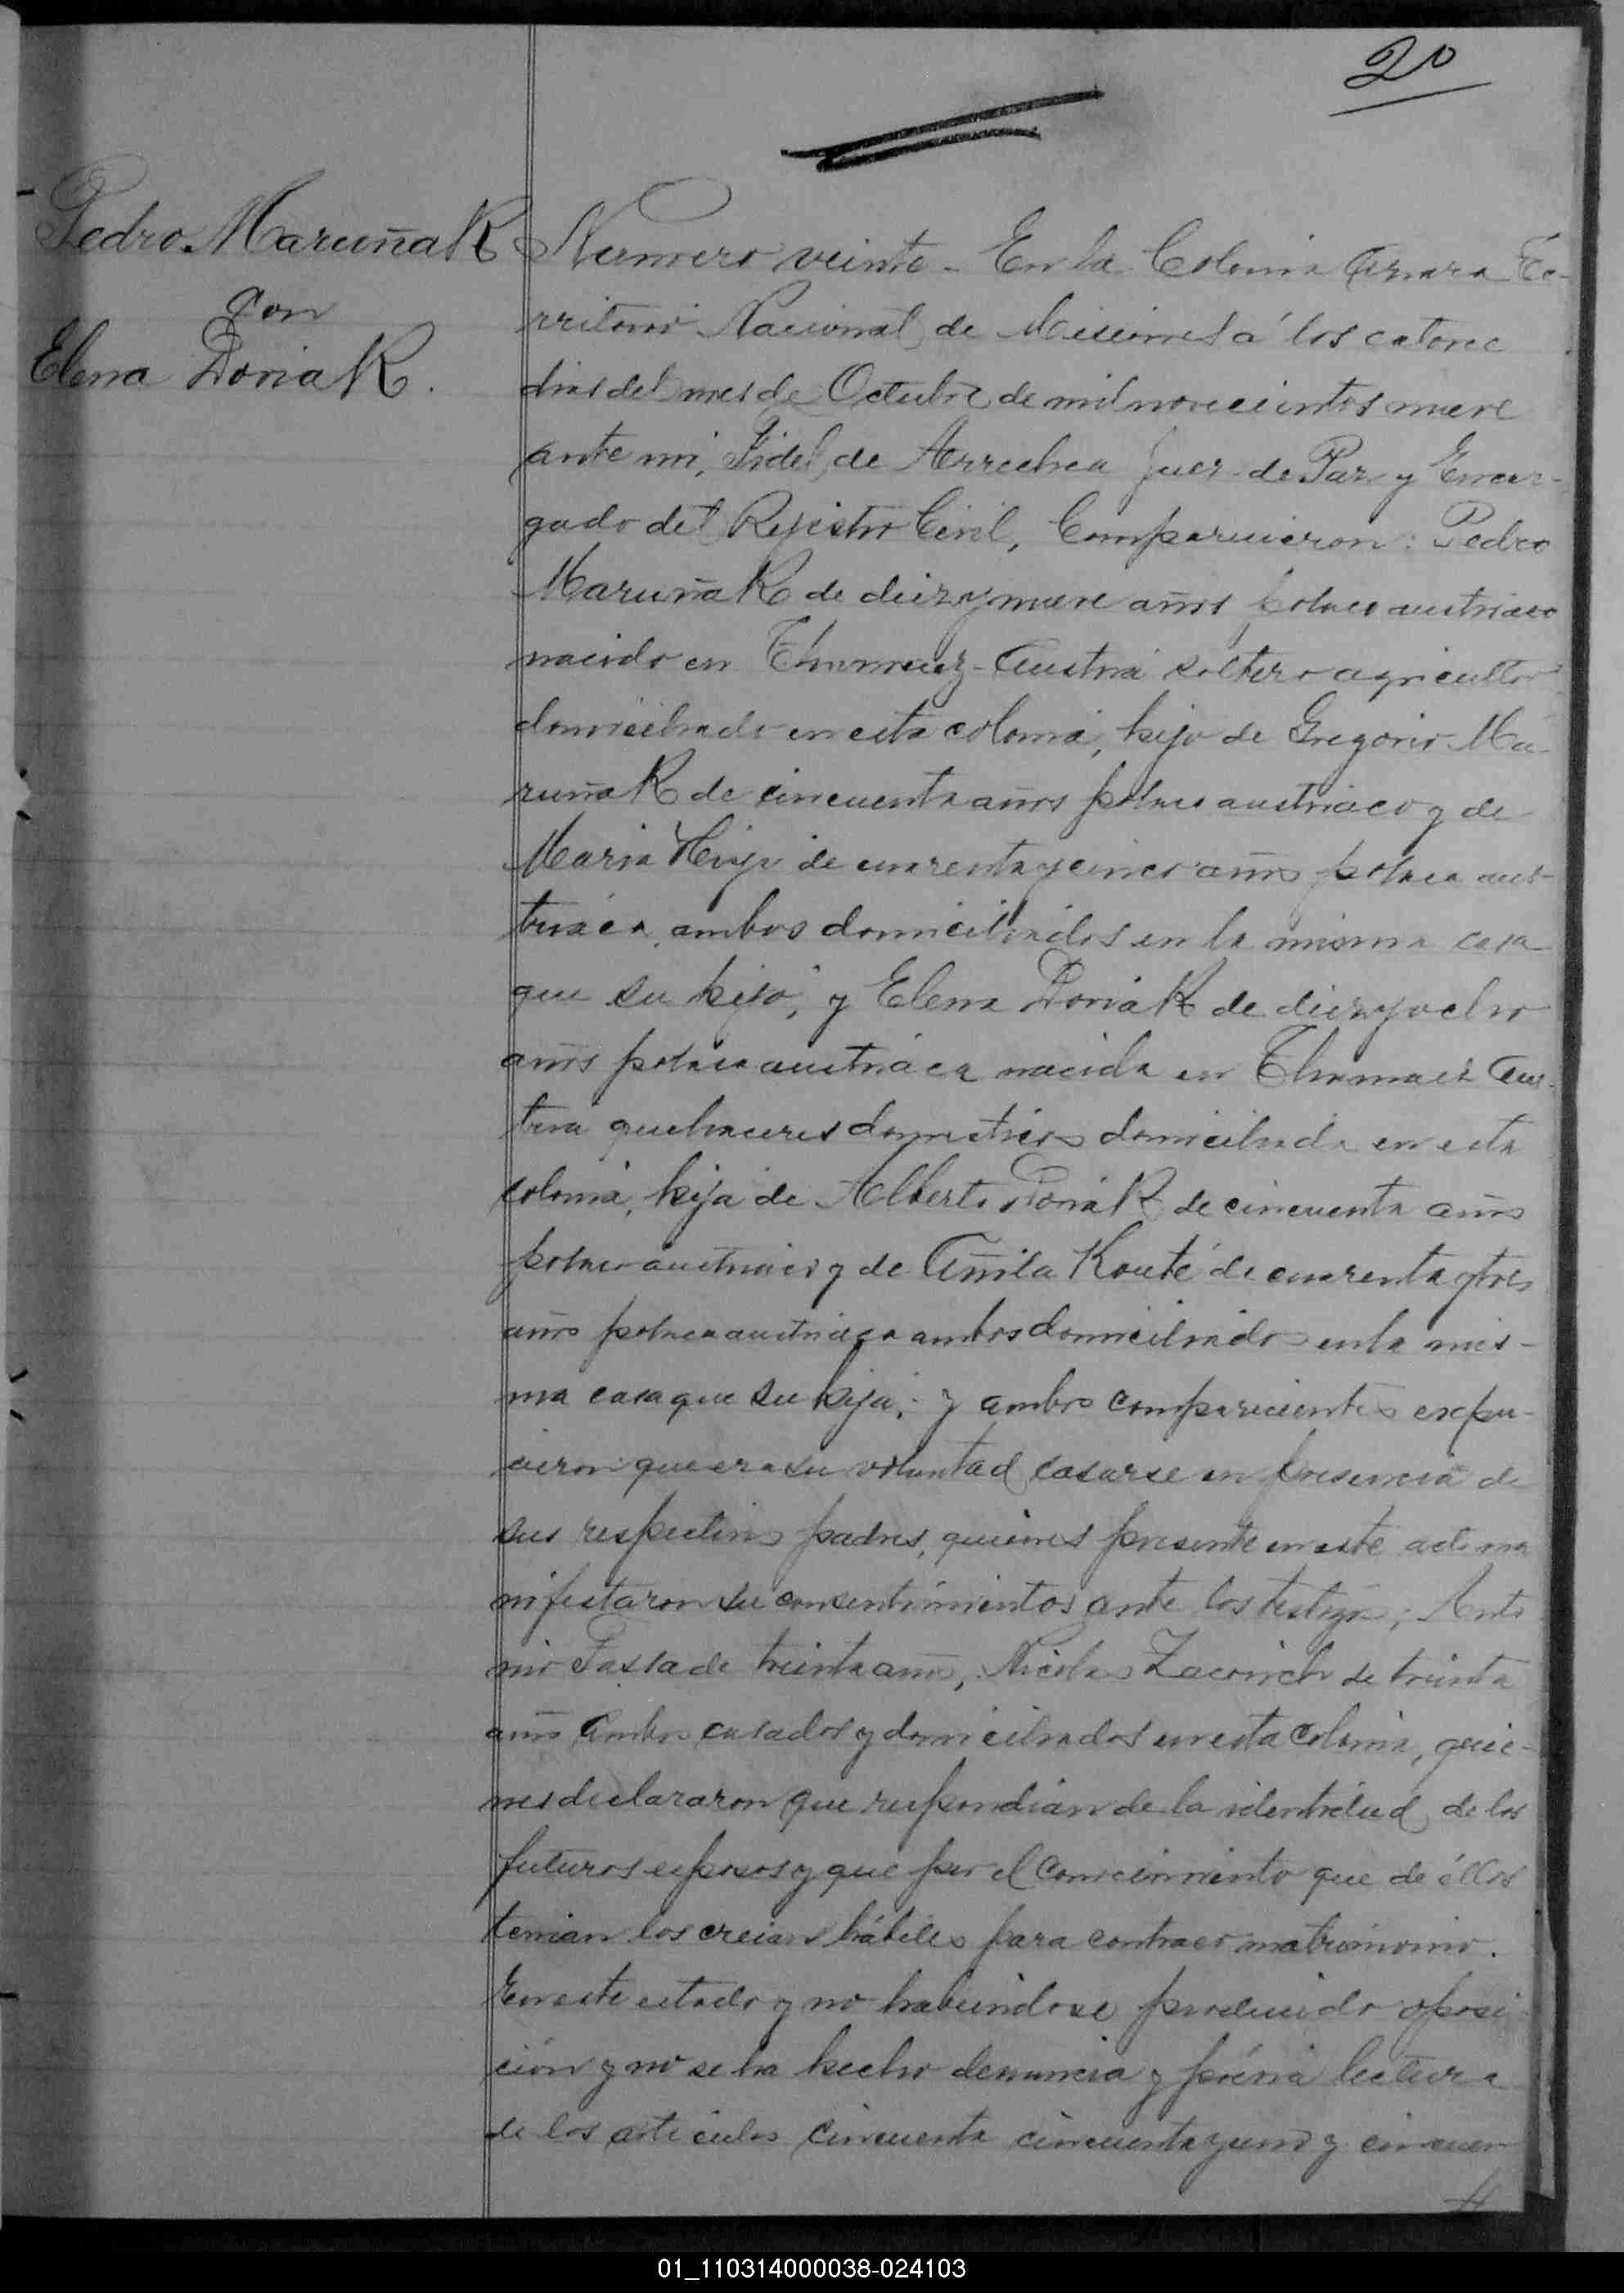 20
Pedro Maruñak
con
Elena Doriak.
Numero veinte - En la Colonia Azara Te-
rritorio Nacional de Misiones á los catorce
dias del mes de Octubre de mil novecientos nueve
ante mi, Fidel de Arrechea Juez de Paz y Encar-
gado del Rejistro Civil, Comparecieron: Pedro
Maruñak de diez y nueve años polaco austriaco
nacido en Austria soltero agricultor
domiciliado en esta colonia, hijo de Gregorio Ma-
ruñak de cincuenta años polaco austriaco y de
Maria de cuarenta y cinco años polaca aus-
triaca, ambos domiciliados en la misma casa
que su hijo; y Elena Doriak de diez y ocho
años polaca austriaca nacida en Aus-
tria quehaceres domesticos domiciliada en esta
colonia, hija de Alberto Doriak de cincuenta años
polaco austriaco y de de cuarenta y tres
años polaca austriaca ambos domiciliados en la mis-
ma casa que su hija; y ambos comparecientes expu-
cieron que era su voluntad casarse en presencia de
sus respectivos padres, quienes presente en este acto ma
nifestaron su consentimientos ante los testigos; Anto
nio de treinta años, Nicolas de treinta
años ambos casados y domiciliados en esta Colonia, quie-
nes declararon que respondian de la identidad de los
futuros esposos y que por el conocimiento que de éllos
tenian los creian hábiles para contraer matrimonio.
En este estado y no habiendose producido oposi
ción y no se ha hecho denuncia y prévia lectura
de los articulos cincuenta cincuenta y uno y cincuen
//
01_110314000038-024103